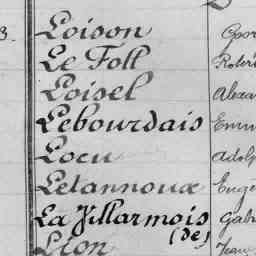 3. Loison Geor
Le Foll Rober
Loisel Alexa
Lebourdais Emm
Locu Adolp
Letannoux Eugè
La Villarmois (de) Gab
Lion Jean